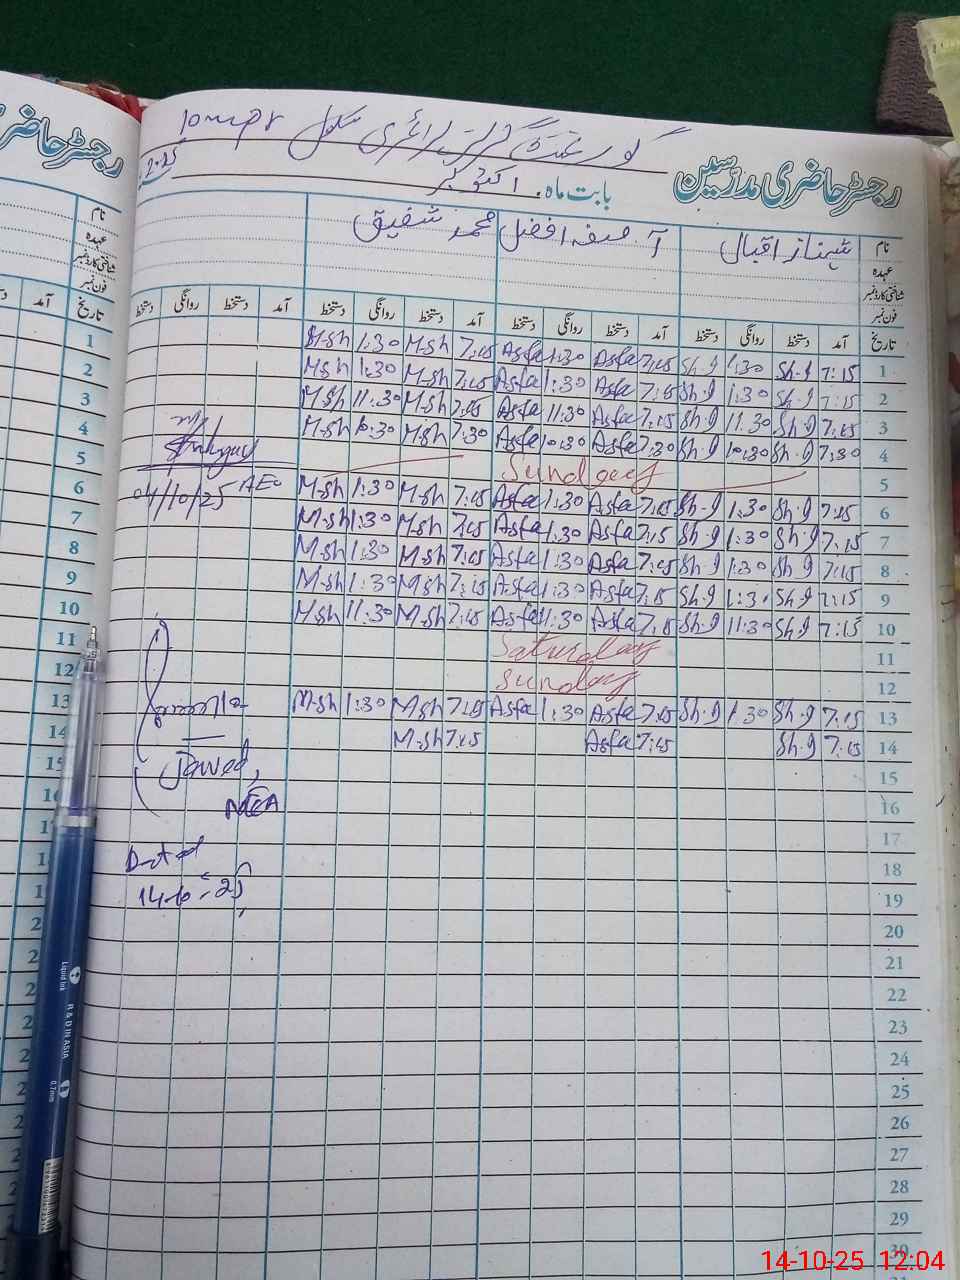 رجسٹر حاضری مدرسین
گورنمنٹ گرلز پرائمری سکول
بابت ماہ اکتوبر 2025
نام شہناز اقبال آصفہ افضل محمد شفیق
عہدہ
شناختی کارڈ نمبر
فون نمبر
تاریخ آمد دستخط روانگی دستخط آمد دستخط روانگی دستخط آمد دستخط روانگی دستخط آمد دستخط روانگی دستخط
1 7:15 Sh.g 1:30 Sh.g 7:15 Asfa 1:30 Asfa 7:15 M.sh 1:30 M.sh
2 7:15 Sh.g 1:30 Sh.g 7:15 Asfa 1:30 Asfa 7:15 M.sh 1:30 M.sh
3 7:15 Sh.g 11.30 Sh.g 7:15 Asfa 11:30 Asfa 7:15 M.sh 11:30 M.sh
4 7:30 Sh.g 10:30 Sh.g 7:30 Asfa 10:30 Asfa 7:30 M.sh 10:30 M.sh
5 Sunday
6 7:15 Sh.g 1:30 Sh.g 7:15 Asfa 1:30 Asfa 7:15 M.sh 1:30 M.sh
7 7:15 Sh.g 1:30 Sh.g 7:15 Asfa 1:30 Asfa 7:15 M.sh 1:30 M.sh
8 7:15 Sh.g 1:30 Sh.g 7:15 Asfa 1:30 Asfa 7:15 M.sh 1:30 M.sh
9 7:15 Sh.g 1:30 Sh.g 7:15 Asfa 1:30 Asfa 7:15 M.sh 1:30 M.sh
10 7:15 Sh.g 11:30 Sh.g 7:15 Asfa 11:30 Asfa 7:15 M.sh 11:30 M.sh
11 Saturday
12 Sunday
13 7:15 Sh.g 1:30 Sh.g 7:15 Asfa 1:30 Asfa 7:15 M.sh 1:30 M.sh
14 7:15 Sh.g 7:15 Asfa 7:15 M.sh
15
16
17
18
19
20
21
22
23
24
25
26
27
28
29
30
AEO
04/10/25
Jawed,
MEA
Dated
14-10-25
رجسٹر حاضری
نام
عہدہ
شناختی کارڈ نمبر
فون نمبر
تاریخ آمد
1
2
3
4
5
6
7
8
9
10
11
12
13
14
15
Liquid Ink
R & D IN ASIA
0.7mm
14-10-25 12:04